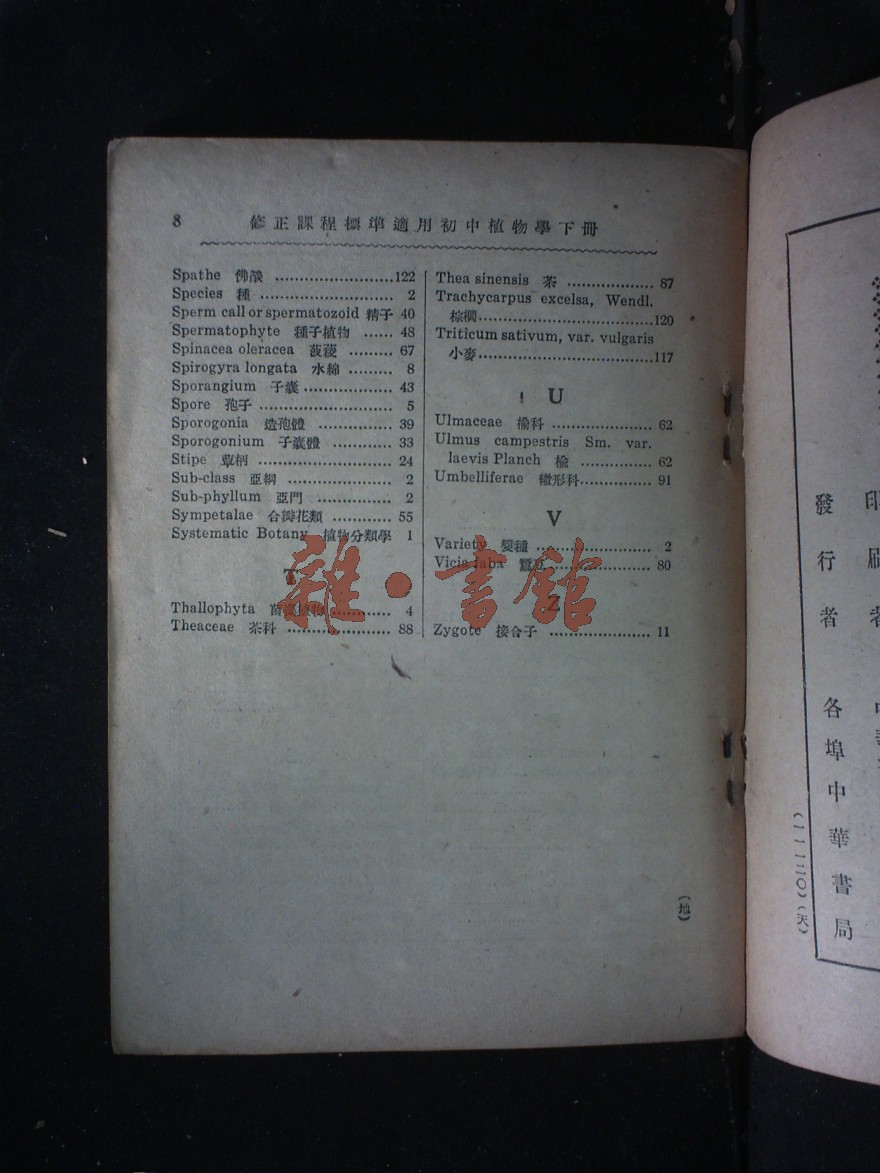 8 修正課程標準適用初中植物學下冊
Spathe 佛燄 ........................122
Species 種 ........................... 2
Sperm call or spermatozoid 精子 40
Spermatophyte 種子植物 ...... 48
Spinacea oleracea 菠薐 ......... 67
Spirogyra longata 水綿 ......... 8
Sporangium 子囊 .................. 43
Spore 孢子 ........................... 5
Sporogonia 造孢體 ............... 39
Sporogonium 子囊體 ............ 33
Stipe 蕈柄 ........................... 24
Sub-class 亞綱 ..................... 2
Sub-phyllum 亞門 ............... 2
Sympetalae 合瓣花類 ............ 55
Systematic Botany 植物分類學 1
T
Thallophyta 菌藻植物 ............ 4
Theaceae 茶科 ..................... 88
Thea sinensis 茶 .................. 87
Trachycarpus excelsa, Wendl.
棕櫚 ....................................120
Triticum sativum, var. vulgaris
小麥 ....................................117
U
Ulmaceae 榆科 ..................... 62
Ulmus campestris Sm. var.
laevis Planch 榆 ............... 62
Umbelliferae 繖形科 ............... 91
V
Variety 變種 ........................ 2
Vicia faba 蠶豆 ..................... 80
Z
Zygote 接合子 ..................... 11
(地)
雜·書館
印刷者
發行者 各埠中華書局
(一一一二〇)(天)